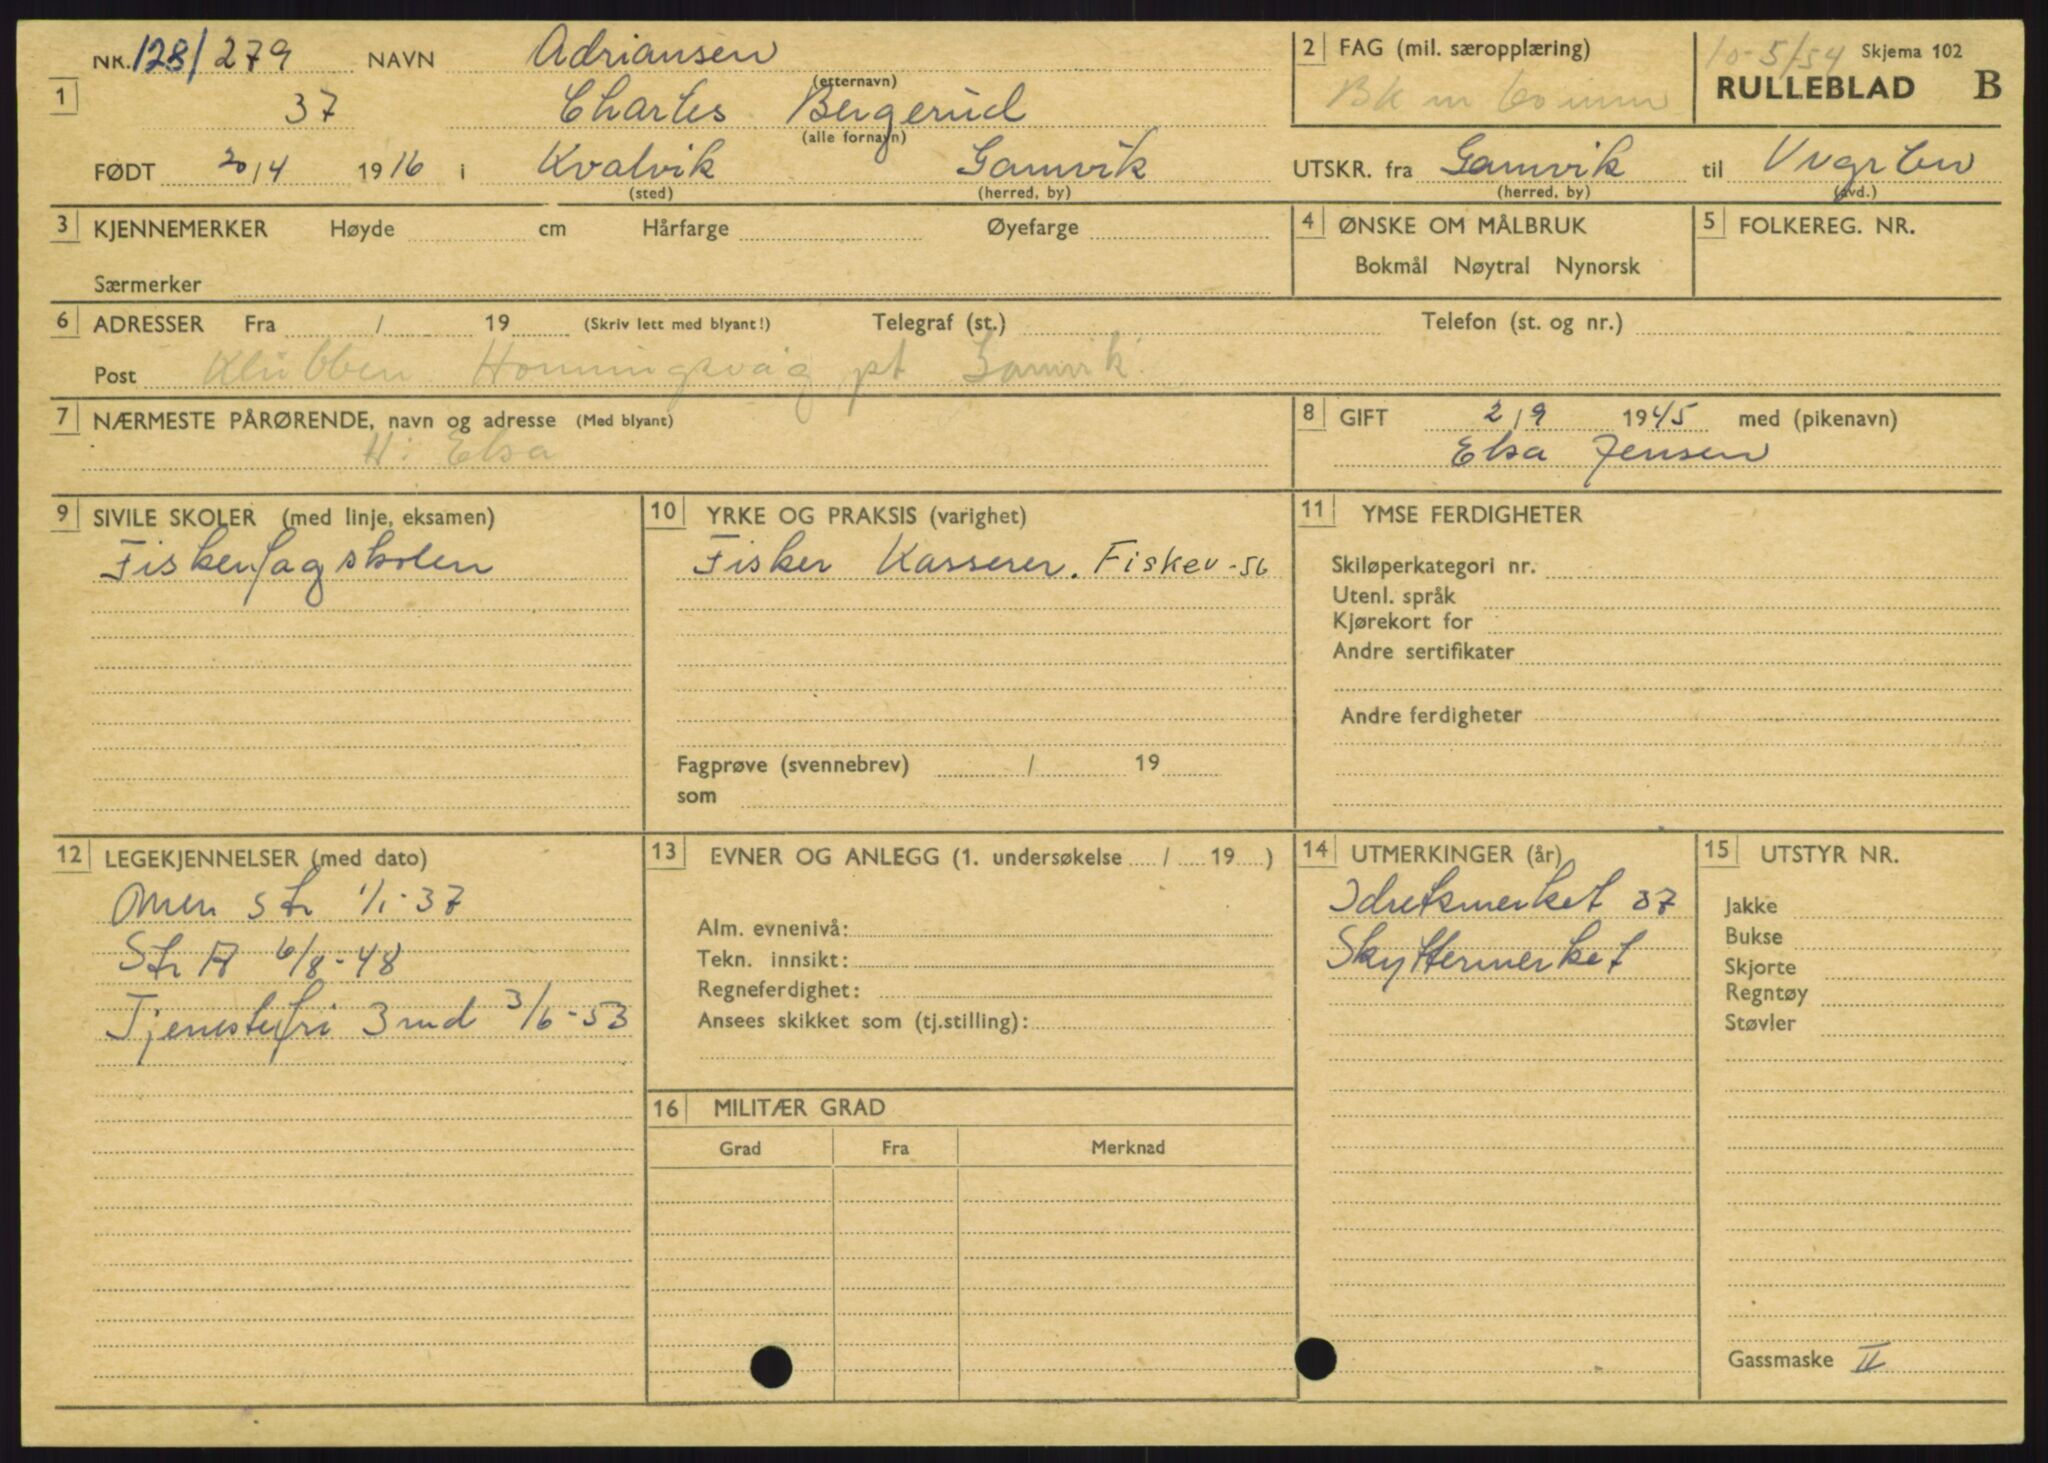 NR. 128/279 NAVN Adriansen
(etternavn)
1 37 Charles Bergerud
(alle fornavn)
FØDT 20/4 1916 i Kvalvik Gamvik
(sted) (herred, by)
2 FAG (mil. særopplæring)
Bk m
10-5/54 Skjema 102
RULLEBLAD B
UTSKR. fra Gamvik til
(herred, by) (avd.)
3 KJENNEMERKER Høyde cm Hårfarge Øyefarge
Særmerker
4 ØNSKE OM MÅLBRUK
Bokmål Nøytral Nynorsk
5 FOLKEREG. NR.
6 ADRESSER Fra / 19 (Skriv lett med blyant!) Telegraf (st.) Telefon (st. og nr.)
Post Klubben Honningsvåg pt Gamvik
7 NÆRMESTE PÅRØRENDE, navn og adresse (Med blyant)
H: Elsa
8 GIFT 2/9 1945 med (pikenavn)
Elsa Jensen
9 SIVILE SKOLER (med linje, eksamen)
Fiskerfagskolen
10 YRKE OG PRAKSIS (varighet)
Fisker Kasserer. Fisker -56
Fagprøve (svennebrev) / 19
som
11 YMSE FERDIGHETER
Skiløperkategori nr.
Utenl. språk
Kjørekort for
Andre sertifikater
Andre ferdigheter
12 LEGEKJENNELSER (med dato)
str 1/1-37
Str A 6/8-48
Tjenestefri 3 md 3/6-53
13 EVNER OG ANLEGG (1. undersøkelse / 19 )
Alm. evnenivå:
Tekn. innsikt:
Regneferdighet:
Ansees skikket som (tj.stilling):
14 UTMERKINGER (år)
Idretsmerket 37
Skyttermerket
15 UTSTYR NR.
Jakke
Bukse
Skjorte
Regntøy
Støvler
Gassmaske II
16 MILITÆR GRAD
Grad Fra Merknad